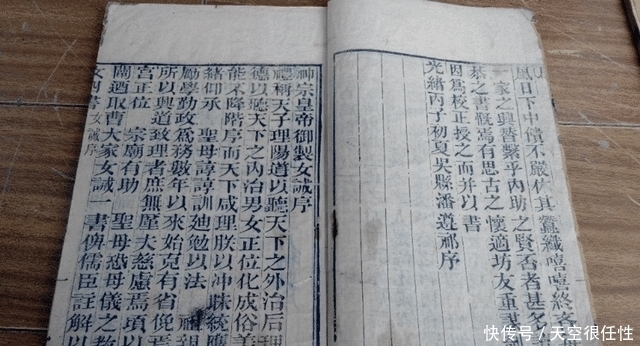 風日下中饋不嚴休其蠶織嘻嘻終吝
一家之興替繫乎內助之賢否者甚多
之書慨焉有思古之懷適坊友重
因爲校正授之而并以書
光緒丙子初夏吳縣潘遵祁序
神宗皇帝御製女誡序
禮稱天子理陽道以聽天下之外治后理
德以聽天下之內治男女正位化成俗美
能不降階序而天下咸理朕以沖昧統膺
緒仰承 聖母諄諄訓廸勉以法 祖
勵學勤政為務數年以來始克有省俛
所以興道致理者庶無廑大慈慮焉頃以
宮正位 宗廟有助 聖母恐母儀之教
閫迺取曹大家女誡一書俾儒臣註解以
女四書 女誡序
快传号 / 天空很任性